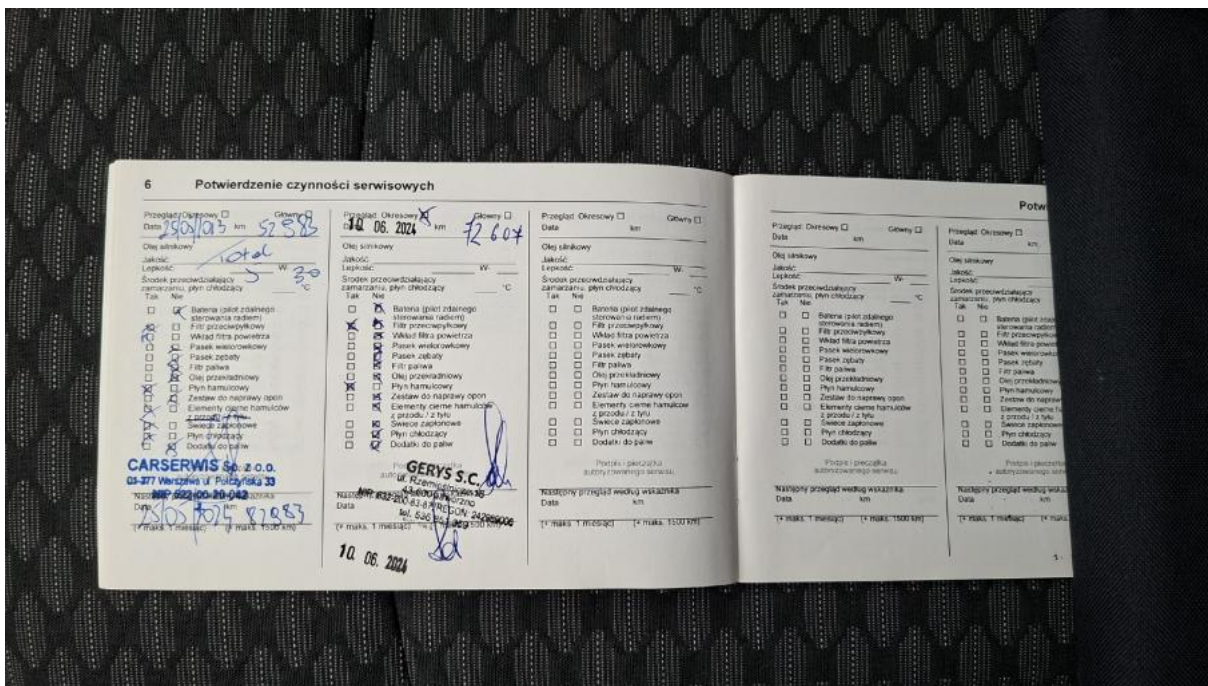 6 Potwierdzenie czynności serwisowych
Przegląd: Okresowy Główny
Data 25/05/2023 km 52 983
Olej silnikowy
Jakość: Total
Lepkość: 5 W- 30
Środek przeciwdziałający
zamarzaniu, płyn chłodzący °C
Tak Nie
Bateria (pilot zdalnego
sterowania radiem)
Filtr przeciwpyłkowy
Wkład filtra powietrza
Pasek wielorowkowy
Pasek zębaty
Filtr paliwa
Olej przekładniowy
Płyn hamulcowy
Zestaw do naprawy opon
Elementy cierne hamulców
z przodu / z tyłu
Świece zapłonowe
Płyn chłodzący
Dodatki do paliw
CARSERWIS Sp. z o.o.
01-377 Warszawa ul. Połczyńska 33
NIP 522-00-20-042
Data km
82983
(+ maks. 1 miesiąc) (+ maks. 1500 km)
Przegląd: Okresowy Główny
10. 06. 2024 km 72 607
Olej silnikowy
Jakość:
Lepkość: W-
Środek przeciwdziałający
zamarzaniu, płyn chłodzący °C
Tak Nie
Bateria (pilot zdalnego
sterowania radiem)
Filtr przeciwpyłkowy
Wkład filtra powietrza
Pasek wielorowkowy
Pasek zębaty
Filtr paliwa
Olej przekładniowy
Płyn hamulcowy
Zestaw do naprawy opon
Elementy cierne hamulców
z przodu / z tyłu
Świece zapłonowe
Płyn chłodzący
Dodatki do paliw
GERYS S.C.
ul. Rzemieślnicza
43-600 Jaworzno
REGON: 
tel. 536
10. 06. 2024
Przegląd: Okresowy Główny
Data km
Olej silnikowy
Jakość:
Lepkość: W-
Środek przeciwdziałający
zamarzaniu, płyn chłodzący °C
Tak Nie
Bateria (pilot zdalnego
sterowania radiem)
Filtr przeciwpyłkowy
Wkład filtra powietrza
Pasek wielorowkowy
Pasek zębaty
Filtr paliwa
Olej przekładniowy
Płyn hamulcowy
Zestaw do naprawy opon
Elementy cierne hamulców
z przodu / z tyłu
Świece zapłonowe
Płyn chłodzący
Dodatki do paliw
Podpis i pieczątka
autoryzowanego serwisu
Następny przegląd według wskaźnika
Data km
(+ maks. 1 miesiąc) (+ maks. 1500 km)
Potw
Przegląd: Okresowy Główny
Data km
Olej silnikowy
Jakość:
Lepkość: W-
Środek przeciwdziałający
zamarzaniu, płyn chłodzący °C
Tak Nie
Bateria (pilot zdalnego
sterowania radiem)
Filtr przeciwpyłkowy
Wkład filtra powietrza
Pasek wielorowkowy
Pasek zębaty
Filtr paliwa
Olej przekładniowy
Płyn hamulcowy
Zestaw do naprawy opon
Elementy cierne hamulców
z przodu / z tyłu
Świece zapłonowe
Płyn chłodzący
Dodatki do paliw
Podpis i pieczątka
autoryzowanego serwisu
Następny przegląd według wskaźnika
Data km
(+ maks. 1 miesiąc) (+ maks. 1500 km)
Przegląd: Okresowy
Data km
Olej silnikowy
Jakość:
Lepkość:
Środek przeciwdziałający
zamarzaniu, płyn chłodzący
Tak Nie
Bateria (pilot zdalnego
sterowania radiem)
Filtr przeciwpyłkowy
Wkład filtra powietrza
Pasek wielorowkowy
Pasek zębaty
Filtr paliwa
Olej przekładniowy
Płyn hamulcowy
Zestaw do naprawy opon
Elementy cierne
z przodu / z tyłu
Świece zapłonowe
Płyn chłodzący
Dodatki do paliw
Podpis i pieczątka
autoryzowanego serwisu
Następny przegląd według
Data km
(+ maks. 1 miesiąc) (+ maks.